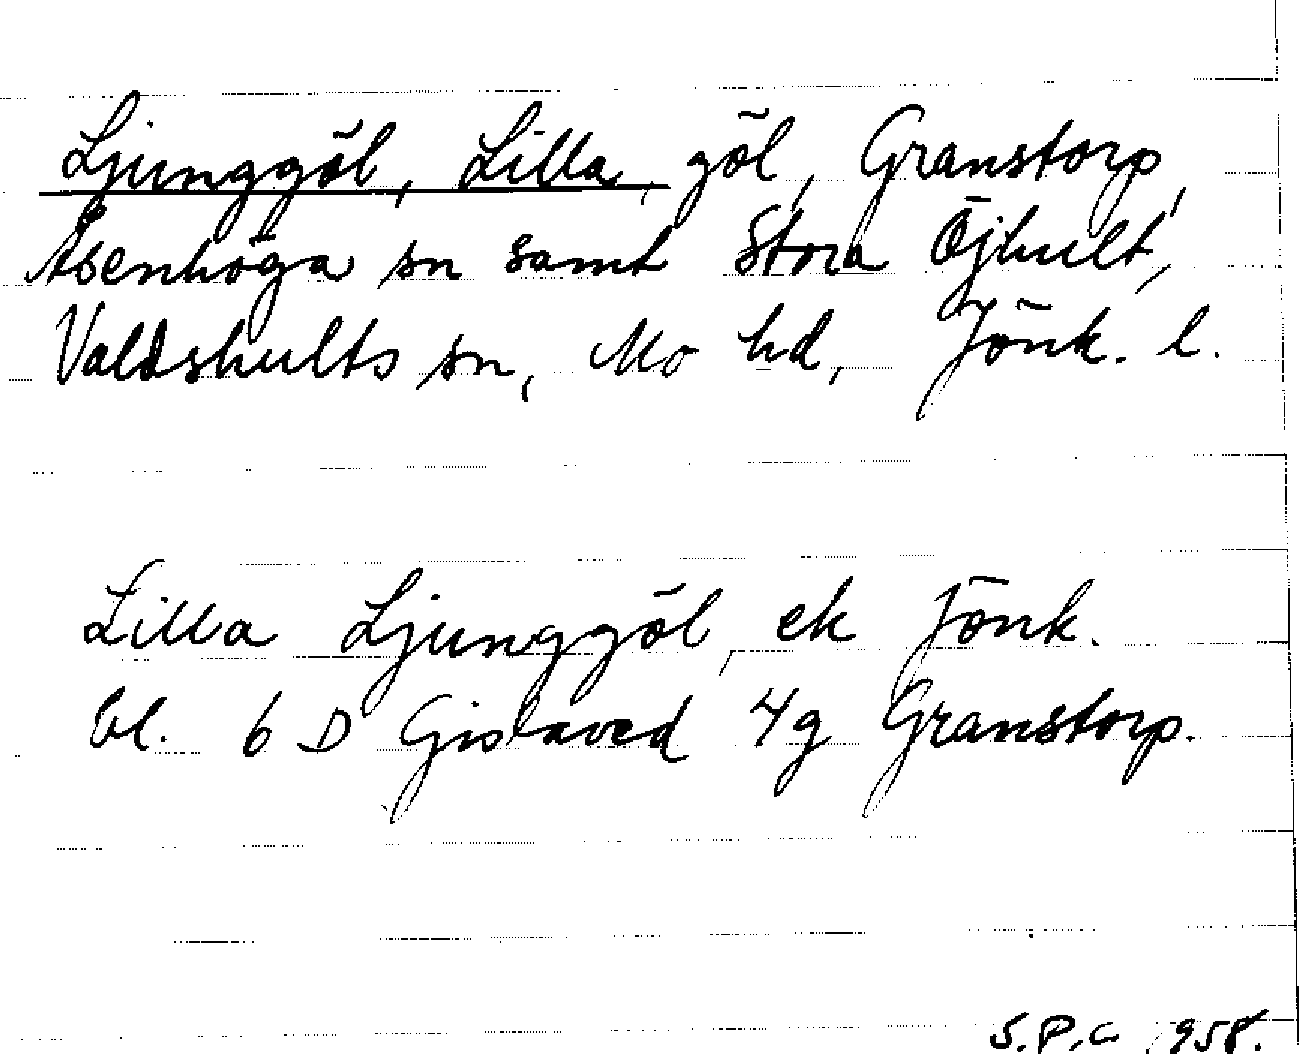 Ljunggöl, Lilla, göl, Granstorp,
Åsenhöga sn samt Stora Öjhult,
Valdshults sn, Mo hd, Jönk. l.
Lilla Ljunggöl, ek Jönk.
bl. 6 D Gislaved 4g Granstorp.
S.P.C 1958.